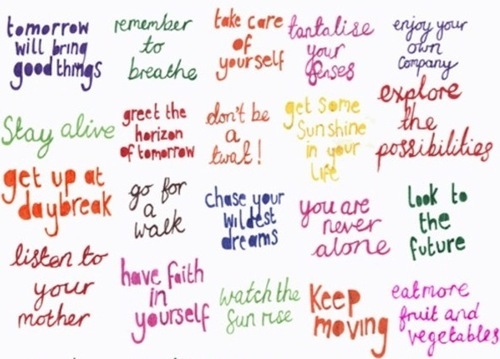 tomorrow
will bring
good things
remember
to
breathe
take care
of
yourself
tantalise
your
senses
enjoy your
own
company
Stay alive
greet the
horizon
of tomorrow
don't be
a
twat!
get some
Sunshine
in your
Life
explore
the
possibilities
get up at
daybreak
go for
a
walk
chase your
Wildest
dreams
you are
never
alone
look to
the
future
listen to
your
mother
have faith
in
yourself
watch the
Sun rise
Keep
moving
eat more
fruit and
vegetables